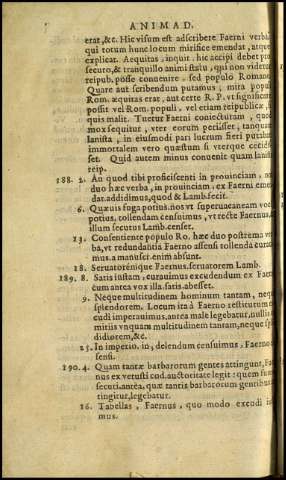 ANIMAD.
erat, &c. Hic visum est adscribere Faerni verba
qui totum hunc locum mirifice emendat, atque
explicat. Aequitas, inquit. hic accipi debet pro
securo, & tranquillo animi statu, qui non videtur
reipub. posse conuenire. sed populo Romano
Quare aut scribendum putamus; mira popu
Rom. aequitas erat, aut certe R. P. vt significare
possit vel Rom. populi, vel etiam reipublicae,
quis malit. Tuetur Faerni coniecturam, quod
mox sequitur, vter eorum perisset, tanquam
lanista, in eiusmodi pari lucrum fieri putabat
immortalem vero quaestum si vterque cecidis
set. Quid autem minus conuenit quam lanistae
reip.
188. 2. An quod tibi proficiscenti in prouinciam,
duo haec verba, in prouinciam, ex Faerni emen
dat. addidimus, quod & Lamb. fecit.
6. Quaeuis fuga potius. nos vt superuacaneam vocem
potius, tollendam censuimus, vt recte Faernus,
illum secutus Lamb. censet.
13. Consentiente populo Ro. haec duo postrema ver
ba, vt redundantia Faerno assensi tollenda cura
mus. a manuscr. enim absunt.
18. Seruatoremque Faernus. seruatorem Lamb.
189. 8. Satis iustam, curauimus excudendum ex Faern
cum antea vox illa. satis. abesset.
9. Neque multitudinem hominum tantam, neque
splendorem. Locum ita à Faerno restitutum
cudi imperauimus. antea male legebatur, nulli
mitiis vnquam multitudinem tantam, neque sp
didiorem, &c.
25. In imperio. in, delendum censuimus, Faerno
sensi.
190. 4. Quam tantae barbarorum gentes attingunt, Faer
nus ex vetusti cod. auctoritate legit: quem su
secuti. antea, quae tantis barbarorum gentibus
tingitur, legebatur.
16. Tabellas, Faernus, quo modo excudi i
mus.